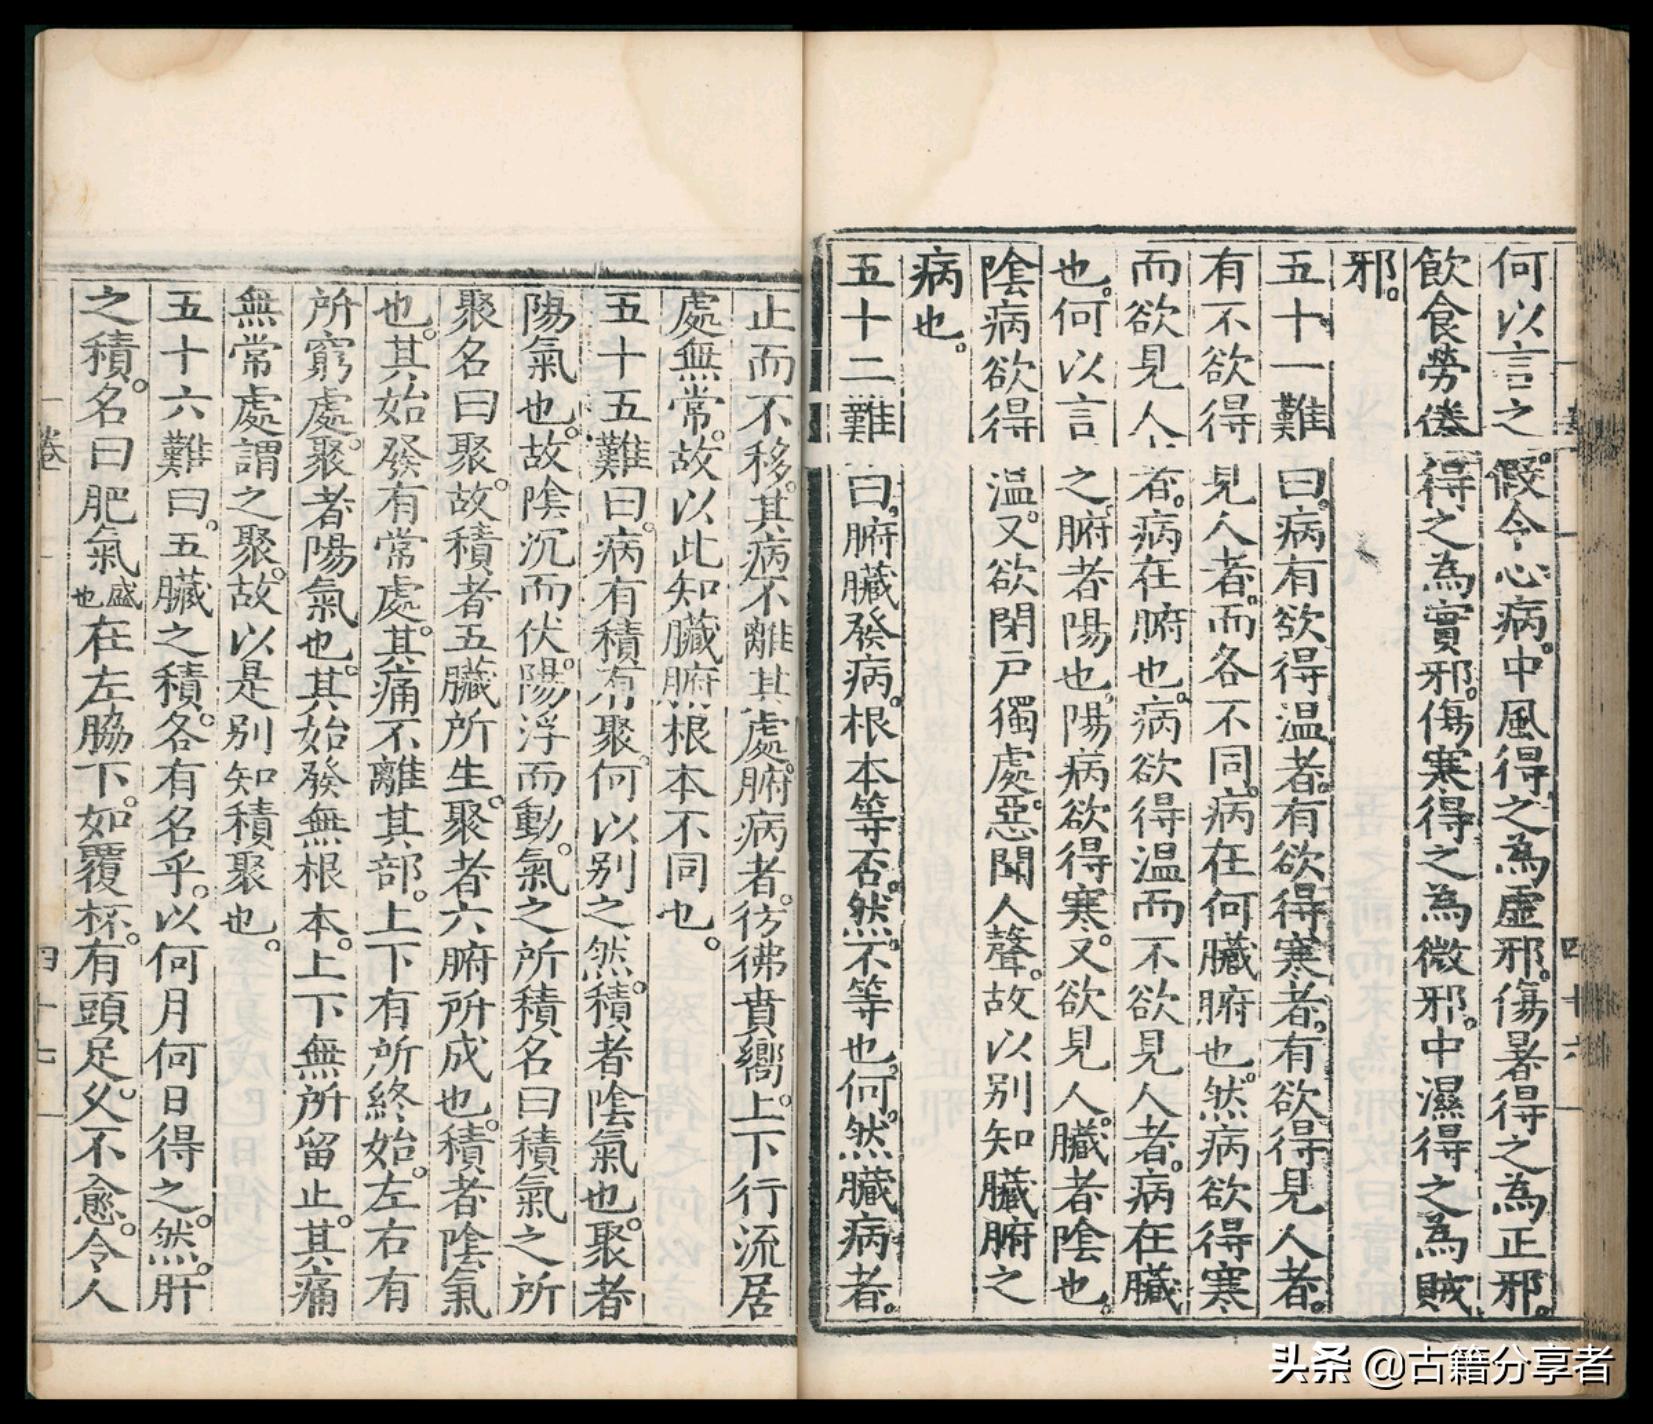 何以言之。假令心病。中風得之為虛邪。傷暑得之為正邪。
飲食勞倦得之為實邪。傷寒得之為微邪。中濕得之為賊
邪。
五十一難曰。病有欲得温者。有欲得寒者。有欲得見人者。
有不欲得見人者。而各不同。病在何臟腑也。然病欲得寒
而欲見人者。病在腑也。病欲得温而不欲見人者。病在臟
也。何以言之。腑者陽也。陽病欲得寒。又欲見人。臟者陰也。
陰病欲得温。又欲閉戸獨處。惡聞人聲。故以别知臟腑之
病也。
五十二難曰。腑臟發病。根本等否。然。不等也。何。然。臟病者。
止而不移。其病不離其處。腑病者。彷彿賁嚮。上下行流。居
處無常。故以此知臟腑根本不同也。
五十五難曰。病有積有聚。何以别之。然。積者陰氣也。聚者
陽氣也。故陰沉而伏。陽浮而動。氣之所積名曰積。氣之所
聚名曰聚。故積者五臟所生。聚者六腑所成也。積者陰氣
也。其始發有常處。其痛不離其部。上下有所終始。左右有
所窮處。聚者陽氣也。其始發無根本。上下無所留止。其痛
無常處。謂之聚。故以是别知積聚也。
五十六難曰。五臟之積。各有名乎。以何月何日得之。然。肝
之積。名曰肥氣盛也在左脇下。如覆杯。有頭足。久不愈。令人
卷
四十七
四十六
头条 @古籍分享者